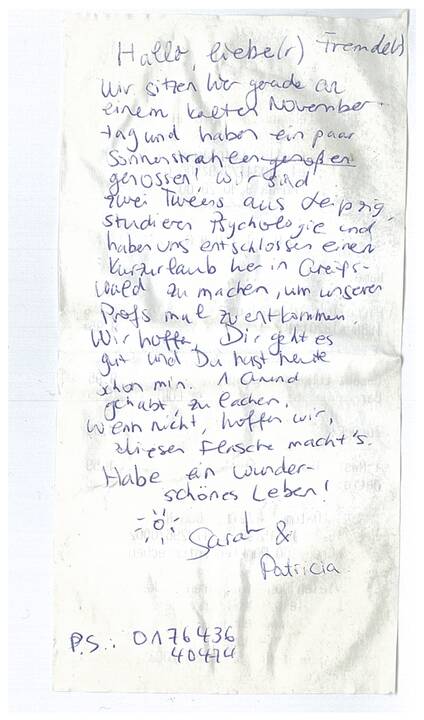 Hallo, liebe(r) Fremde(r)
Wir sitzen hier gerade an
einem kalten November-
tag und haben ein paar
Sonnenstrahlen genoßen
genossen! Wir sind
zwei Tweens aus Leipzig,
studieren Psychologie und
haben uns entschlossen einen
Kurzurlaub hier in Greifs-
wald zu machen, um unseren
Profs mal zu entkommen.
Wir hoffen, Dir geht es
gut und Du hast heute
schon min. 1 Grund
gehabt, zu lachen.
Wenn nicht, hoffen wir,
diese Flasche macht's.
Habe ein wunder-
schönes Leben!
Sarah &
Patricia
P.S.: 0176436
40474